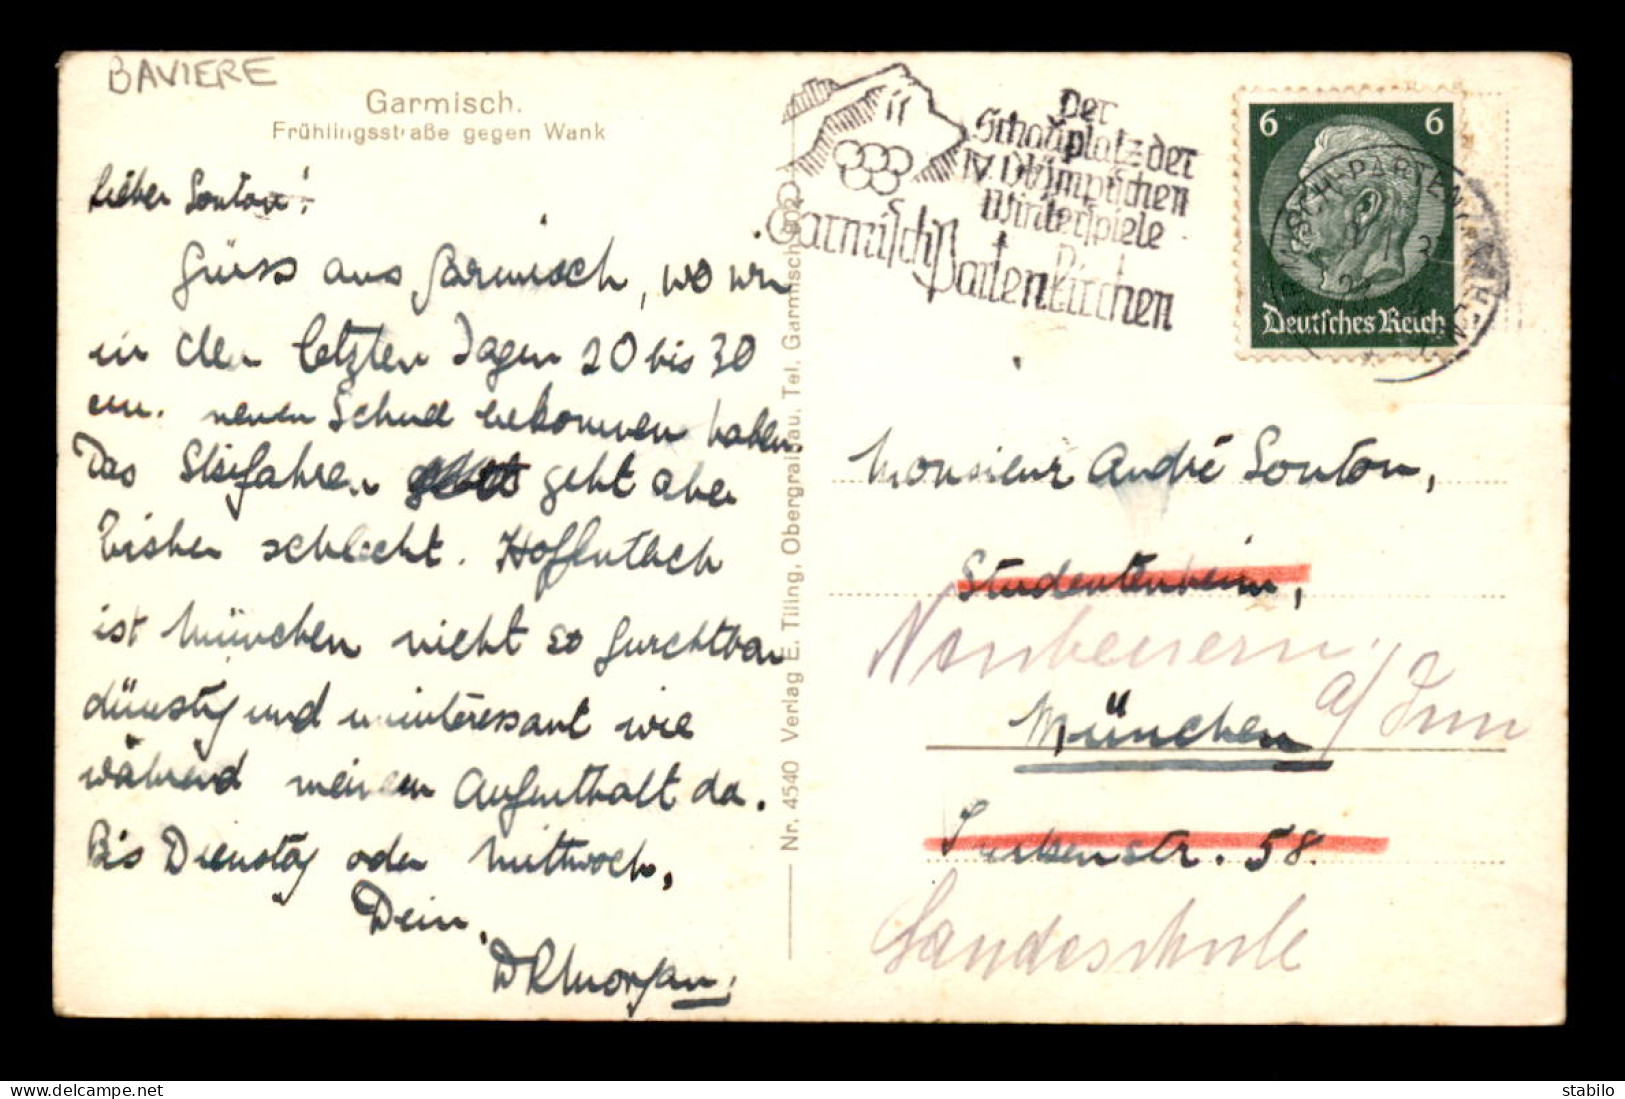 BAVIERE
Garmisch.
Frühlingsstraße gegen Wank
Lieber Souton!
Grüss aus Garmisch, wo wir
in den letzten Tagen 20 bis 30
cm. neuen Schnee bekommen haben.
Das Skifahren geht aber
bisher schlecht. Hoffentlich
ist München nicht so furchtbar
dunstig und uninteressant wie
während meinem Aufenthalt da.
Bis Dienstag oder Mittwoch,
Dein,
Nr. 4540 Verlag E. Tiling, Obergrainau. Tel. Garmisch
Der
Schauplatz der
IV. Olympischen
Winterspiele
Garmisch Partenkirchen
6 6
Deutsches Reich
Monsieur André Souton,
Studentenheim,
Neubeuern
a/ Inn
München
str. 58.
Landesschule
stabilo